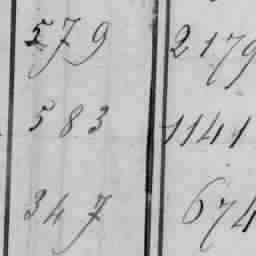 579 2179
583 1141
347 674